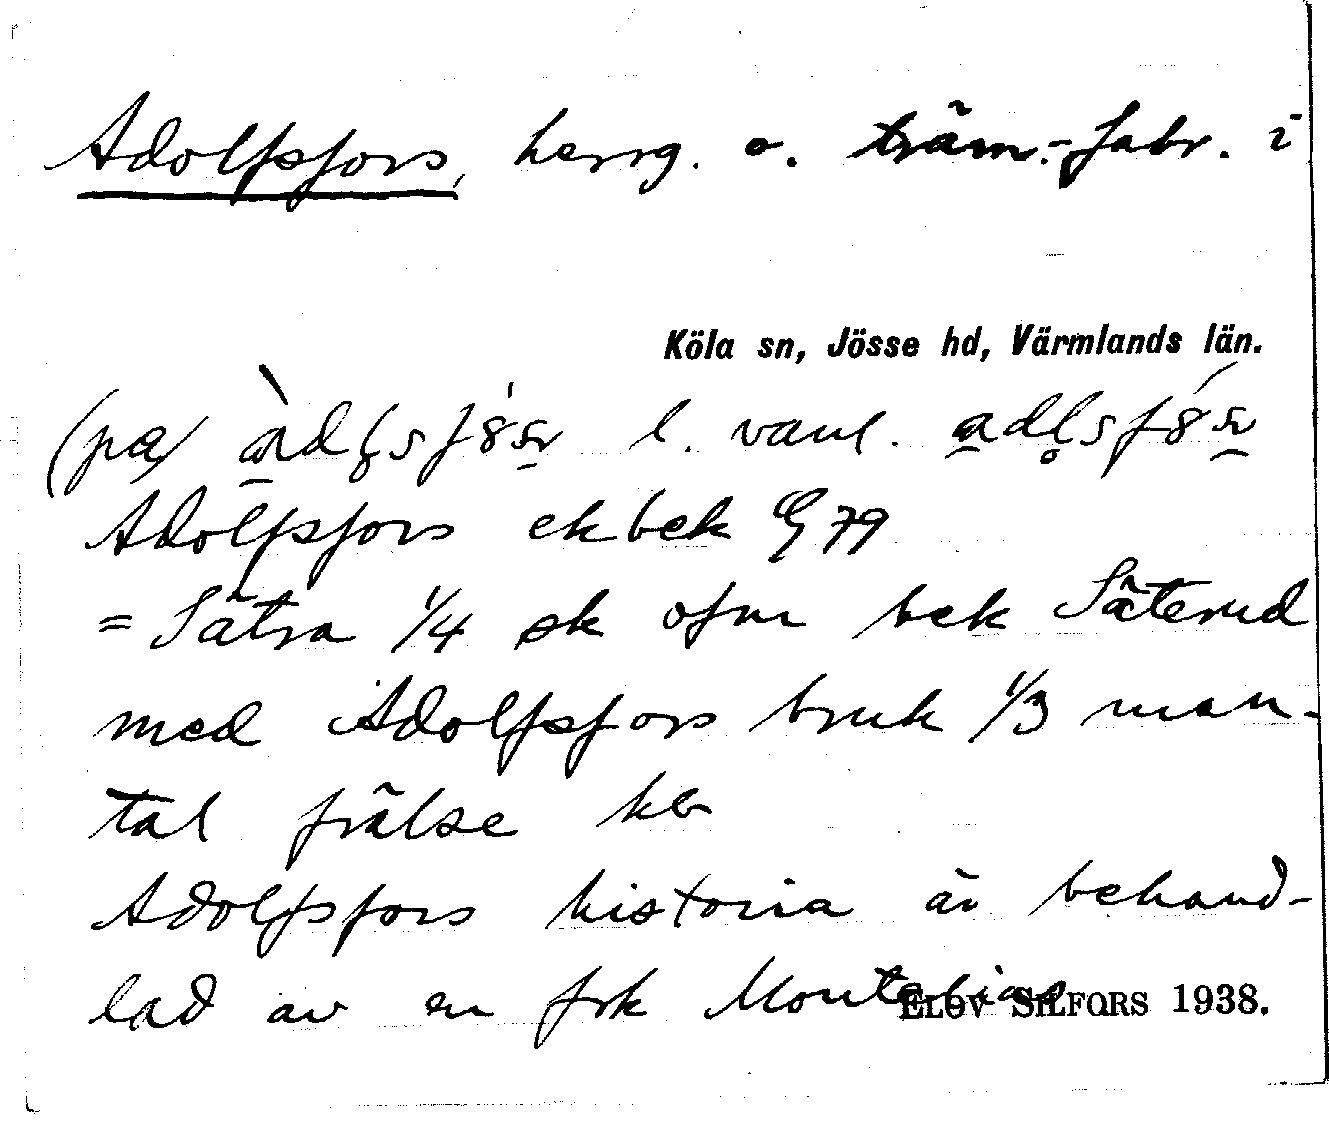 Adolfsfors, herrg. o. träm.-fabr. i
Köla sn, Jösse hd, Värmlands län.
(på) l. vanl.
Adolfsfors ekbek G 79
= Sätra 1/4 sk ofvr bek Säterud
med Adolfsfors bruk 1/3 man-
tal frälse kb
Adolfsfors historia är behand-
lad av en frk
ELOV SILFORS 1938.